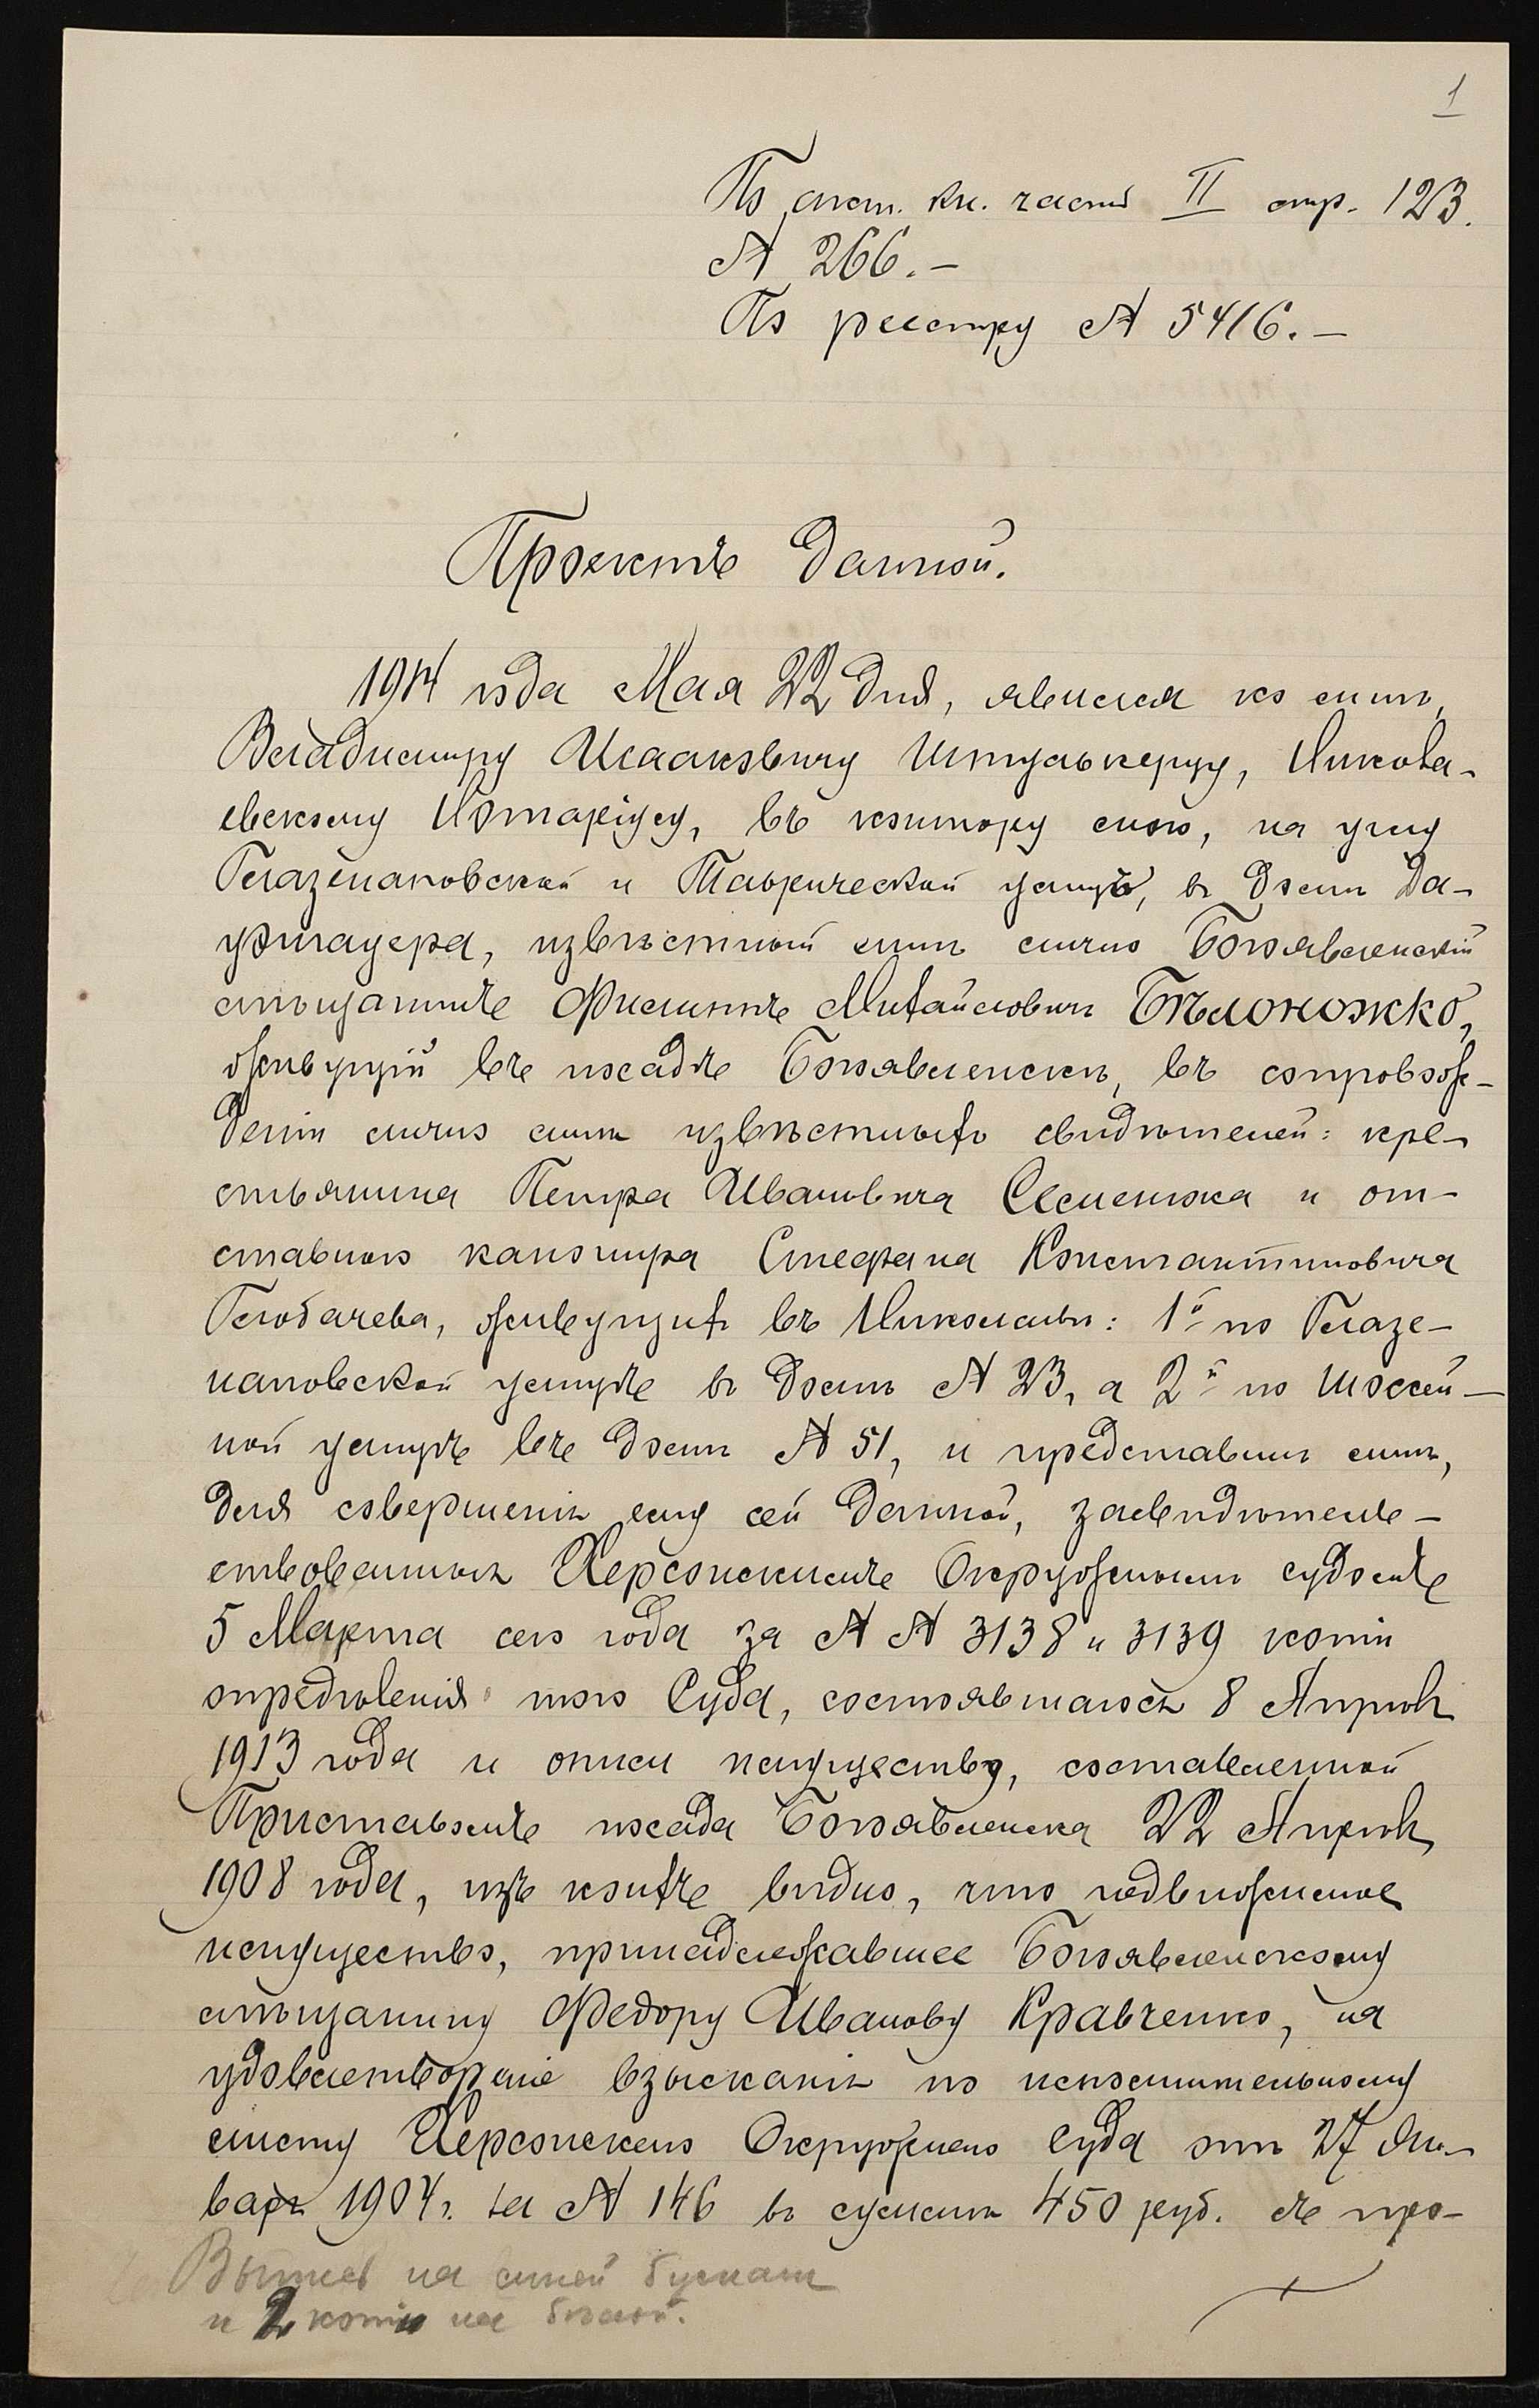 1
По акт. кн. части II стр. 123.
№ 266.-
По реестру № 5416.-
Проектъ данной.
1914 года Мая 22 дня, явился ко мнѣ,
Владиміру Исааковичу Штульке­рцу, Никола-
евскому Нотаріусу, въ контору мою, на углу
Глазенаповской и Таврической улицъ, въ домѣ Да-
умгауера, извѣстный мнѣ лично Богоявленскій
мѣщанинъ Филиппъ Михайловичъ Бѣлоножко,
живущій въ посадѣ Богоявленскѣ, въ сопровож-
деніи лично мнѣ извѣстныхъ свидѣтелей: кре-
стьянина Петра Ивановича Семенюка и от-
ставного канонира Стефана Константиновича
Глобачева, живущихъ въ Николаевѣ: 1й по Глазе-
наповской улицѣ въ домѣ № 23, а 2й по Шоссей-
ной улицѣ въ домѣ № 51, и представилъ мнѣ,
для совершенія ему сей данной, засвидѣтель-
ствованныя Херсонскимъ Окружнымъ судомъ
5 Марта сего года за № № 3138 и 3139 копіи
опредѣленія того Суда, состоявшагося 8 Апрѣля
1913 года и описи имуществу, составленной
Приставомъ посада Богоявленска 22 Апрѣля
1908 года, изъ коихъ видно, что недвижимое
имущество, принадлежавшее Богоявленскому
мѣщанину Федору Иванову Кравченко, на
удовлетвореніе взысканія по исполнительному
листу Херсонскаго Окружнаго Суда отъ 27 Ян-
варя 1904 г. за № 146 въ суммѣ 450 руб. съ про-
на синей бумагѣ
и 2 копіи на бѣлой.